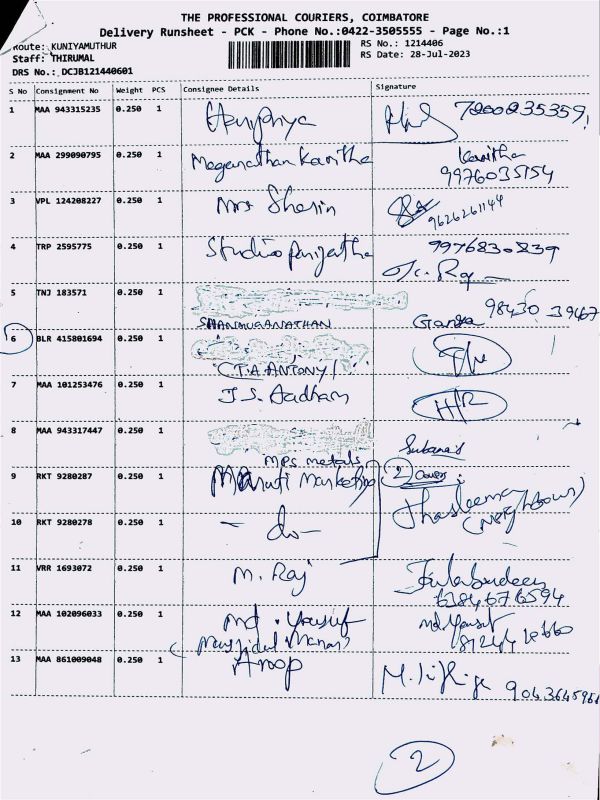 THE PROFESSIONAL COURIERS, COIMBATORE
Delivery Runsheet - PCK - Phone No.:0422-3505555 - Page No.:1
Route: KUNIYAMUTHUR
RS No.: 1214406
Staff: THIRUMAL
RS Date: 28-Jul-2023
DRS No.: DCJB121440601
S No Consignment No Weight PCS Consignee Details Signature
1 MAA 943315235 0.250 1
2 MAA 299090795 0.250 1 Meganathan Kavitha Kavitha
9976035154
3 VPL 124208227 0.250 1 Mrs Sherin 9626261144
4 TRP 2595775 0.250 1 Studio Parijatha 9976830239
5 TNJ 183571 0.250 1 98430 39467
SHANMUGANATHAN Ganga
6 BLR 415801694 0.250 1
C.T.A ANTONY
7 MAA 101253476 0.250 1 J.S. Aadham
8 MAA 943317447 0.250 1
MPS metals
9 RKT 9280287 0.250 1 Maruti Marketing 2 Cover
Thasleema
(Neighbour)
10 RKT 9280278 0.250 1 - do -
11 VRR 1693072 0.250 1 M. Raj
12 MAA 102096033 0.250 1 Md. Yausuf
13 MAA 861009048 0.250 1 Anop
2